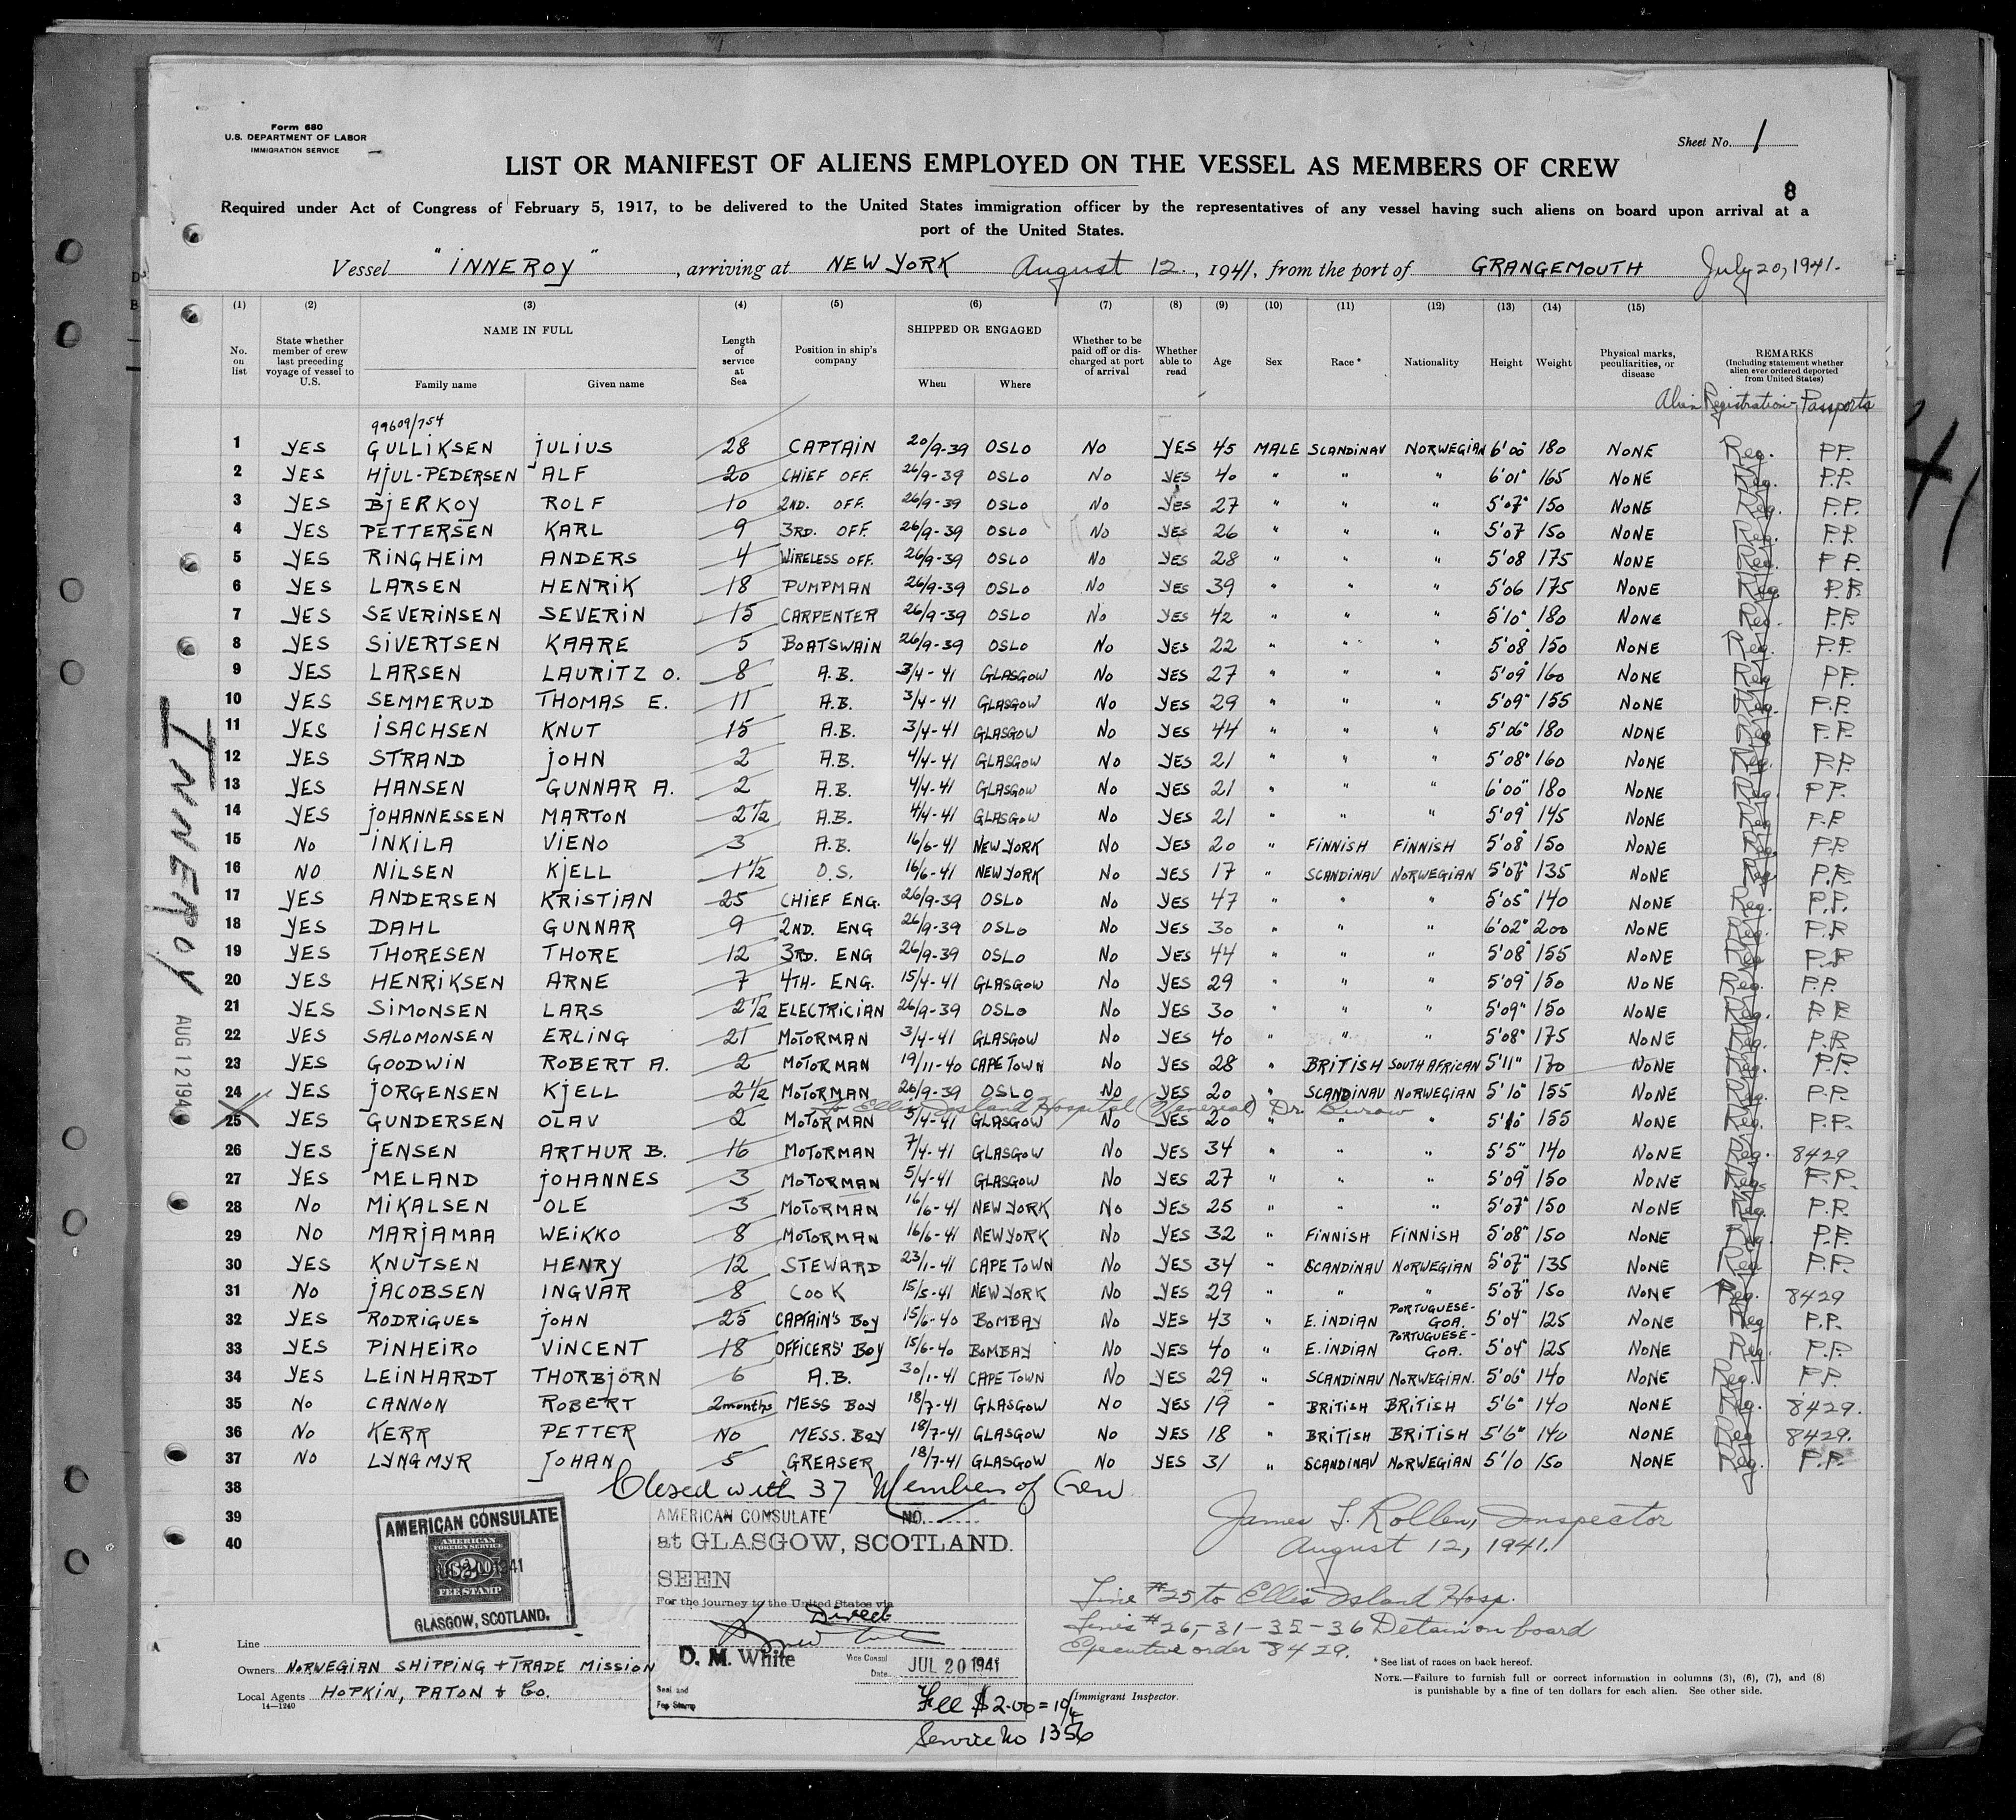 Form 680
U.S. DEPARTMENT OF LABOR
IMMIGRATION SERVICE
Sheet No. 1
LIST OR MANIFEST OF ALIENS EMPLOYED ON THE VESSEL AS MEMBERS OF CREW
8
Required under Act of Congress of February 5, 1917, to be delivered to the United States immigration officer by the representatives of any vessel having such aliens on board upon arrival at a
port of the United States.
Vessel "INNEROY", arriving at NEW YORK August 12, 1941, from the port of GRANGEMOUTH July 20, 1941.
(1) (2) (3) (4) (5) (6) (7) (8) (9) (10) (11) (12) (13) (14) (15)
No. on list State whether member of crew last preceding voyage of vessel to U.S. NAME IN FULL Family name Given name Length of service at Sea Position in ship's company SHIPPED OR ENGAGED When Where Whether to be paid off or discharged at port of arrival Whether able to read Age Sex Race* Nationality Height Weight Physical marks, peculiarities, or disease REMARKS (Including statement whether alien ever ordered deported from United States)
Alien Registration Passports
99609/754
1 YES GULLIKSEN JULIUS 28 CAPTAIN 20/9-39 OSLO NO YES 45 MALE SCANDINAV NORWEGIAN 6'00" 180 NONE Reg. P.P.
2 YES HJUL-PEDERSEN ALF 20 CHIEF OFF. 26/9-39 OSLO NO YES 40 " " " 6'01" 165 NONE Reg. P.P.
3 YES BJERKOY ROLF 10 2ND. OFF. 26/9-39 OSLO NO YES 27 " " " 5'07" 150 NONE Reg. P.P.
4 YES PETTERSEN KARL 9 3RD. OFF. 26/9-39 OSLO NO YES 26 " " " 5'07 150 NONE Reg. P.P.
5 YES RINGHEIM ANDERS 4 WIRELESS OFF. 26/9-39 OSLO NO YES 28 " " " 5'08 175 NONE Reg. P.P.
6 YES LARSEN HENRIK 18 PUMPMAN 26/9-39 OSLO NO YES 39 " " " 5'06 175 NONE Reg. P.P.
7 YES SEVERINSEN SEVERIN 15 CARPENTER 26/9-39 OSLO NO YES 42 " " " 5'10" 180 NONE Reg. P.P.
8 YES SIVERTSEN KAARE 5 BOATSWAIN 26/9-39 OSLO NO YES 22 " " " 5'08" 150 NONE Reg. P.P.
9 YES LARSEN LAURITZ O. 8 A.B. 3/4-41 GLASGOW NO YES 27 " " " 5'09" 160 NONE Reg. P.P.
10 YES SEMMERUD THOMAS E. 11 A.B. 3/4-41 GLASGOW NO YES 29 " " " 5'09" 155 NONE Reg. P.P.
11 YES ISACHSEN KNUT 15 A.B. 3/4-41 GLASGOW NO YES 44 " " " 5'06" 180 NONE Reg. P.P.
12 YES STRAND JOHN 2 A.B. 4/4-41 GLASGOW NO YES 21 " " " 5'08" 160 NONE Reg. P.P.
13 YES HANSEN GUNNAR A. 2 A.B. 4/4-41 GLASGOW NO YES 21 " " " 6'00" 180 NONE Reg. P.P.
14 YES JOHANNESSEN MARTON 2 1/2 A.B. 4/4-41 GLASGOW NO YES 21 " " " 5'09" 145 NONE Reg. P.P.
15 NO INKILA VIENO 3 A.B. 16/6-41 NEW YORK NO YES 20 " FINNISH FINNISH 5'08" 150 NONE Reg. P.P.
16 NO NILSEN KJELL 1 1/2 O.S. 16/6-41 NEW YORK NO YES 17 " SCANDINAV NORWEGIAN 5'07" 135 NONE Reg. P.P.
17 YES ANDERSEN KRISTIAN 25 CHIEF ENG. 26/9-39 OSLO NO YES 47 " " " 5'05" 140 NONE Reg. P.P.
18 YES DAHL GUNNAR 9 2ND. ENG 26/9-39 OSLO NO YES 30 " " " 6'02" 200 NONE Reg. P.P.
19 YES THORESEN THORE 12 3RD. ENG 26/9-39 OSLO NO YES 44 " " " 5'08" 155 NONE Reg. P.P.
20 YES HENRIKSEN ARNE 7 4TH. ENG. 15/4-41 GLASGOW NO YES 29 " " " 5'09" 150 NONE Reg. P.P.
21 YES SIMONSEN LARS 2 1/2 ELECTRICIAN 26/9-39 OSLO NO YES 30 " " " 5'09" 150 NONE Reg. P.P.
22 YES SALOMONSEN ERLING 21 MOTORMAN 3/4-41 GLASGOW NO YES 40 " " " 5'08" 175 NONE Reg. P.P.
23 YES GOODWIN ROBERT A. 2 MOTORMAN 19/11-40 CAPE TOWN NO YES 28 " BRITISH SOUTH AFRICAN 5'11" 170 NONE Reg. P.P.
24 YES JORGENSEN KJELL 2 1/2 MOTORMAN 26/9-39 OSLO NO YES 20 " SCANDINAV NORWEGIAN 5'10" 155 NONE Reg. P.P.
To Ellis Island Hospital (Venereal) Dr. Burow
25 YES GUNDERSEN OLAV 2 MOTORMAN 5/4-41 GLASGOW NO YES 20 " " " 5'10" 155 NONE Reg. P.P.
26 YES JENSEN ARTHUR B. 16 MOTORMAN 7/4-41 GLASGOW NO YES 34 " " " 5'5" 140 NONE Reg. 8429
27 YES MELAND JOHANNES 3 MOTORMAN 5/4-41 GLASGOW NO YES 27 " " " 5'09" 150 NONE Reg. P.P.
28 NO MIKALSEN OLE 3 MOTORMAN 16/6-41 NEW YORK NO YES 25 " " " 5'07" 150 NONE Reg. P.P.
29 NO MARJAMAA WEIKKO 8 MOTORMAN 16/6-41 NEW YORK NO YES 32 " FINNISH FINNISH 5'08" 150 NONE Reg. P.P.
30 YES KNUTSEN HENRY 12 STEWARD 23/1-41 CAPE TOWN NO YES 34 " SCANDINAV NORWEGIAN 5'07" 135 NONE Reg. P.P.
31 NO JACOBSEN INGVAR 8 COOK 15/5-41 NEW YORK NO YES 29 " " " 5'07" 150 NONE Reg. 8429
32 YES RODRIGUES JOHN 25 CAPTAIN'S BOY 15/6-40 BOMBAY NO YES 43 " E. INDIAN PORTUGUESE-GOA. 5'04" 125 NONE Reg P.P.
33 YES PINHEIRO VINCENT 18 OFFICERS' BOY 15/6-40 BOMBAY NO YES 40 " E. INDIAN PORTUGUESE-GOA. 5'04" 125 NONE Reg. P.P.
34 YES LEINHARDT THORBJORN 6 A.B. 30/1-41 CAPE TOWN NO YES 29 " SCANDINAV NORWEGIAN. 5'06" 140 NONE Reg. P.P.
35 NO CANNON ROBERT 2 months MESS BOY 18/7-41 GLASGOW NO YES 19 " BRITISH BRITISH 5'6" 140 NONE Reg. 8429.
36 NO KERR PETTER NO MESS. BOY 18/7-41 GLASGOW NO YES 18 " BRITISH BRITISH 5'6" 140 NONE Reg 8429.
37 NO LYNGMYR JOHAN 5 GREASER 18/7-41 GLASGOW NO YES 31 " SCANDINAV NORWEGIAN 5'10 150 NONE Reg. P.P.
38 Closed with 37 Members of Crew
39
40
INNEROY
AUG 12 194
AMERICAN CONSULATE
AMERICAN
FOREIGN SERVICE
FEE STAMP
GLASGOW, SCOTLAND.
AMERICAN CONSULATE NO.
at GLASGOW, SCOTLAND.
SEEN
For the journey to the United States via
Direct
D. M. White
Vice Consul
Date JUL 20 1941
Seal and
Fee Stamp
Fee $2.00 = 10/4
Service No 1356
James F. Rollen, Inspector
August 12, 1941.
Line #25 to Ellis Island Hosp.
Lines #26-31-35-36 Detain on board
Executive order 8429.
Immigrant Inspector.
Line
Owners NORWEGIAN SHIPPING + TRADE MISSION
Local Agents HOPKIN, PATON & Co.
14—1240
* See list of races on back hereof.
NOTE.—Failure to furnish full or correct information in columns (3), (6), (7), and (8)
is punishable by a fine of ten dollars for each alien. See other side.